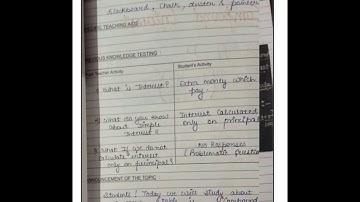 Blackboard, Chalk, duster & pointer
TEACHING AIDS
KNOWLEDGE TESTING :
Teacher Activity
Student's Activity
What is Interest?
Extra money which
pay.
What do you know
about Simple
Interest?
Interest Calculated
only on principal
What If we do not
calculate interest
only on principal?
No Responses
(Problematic Question
OUNCEMENT OF THE TOPIC :
Students! Today we will study about